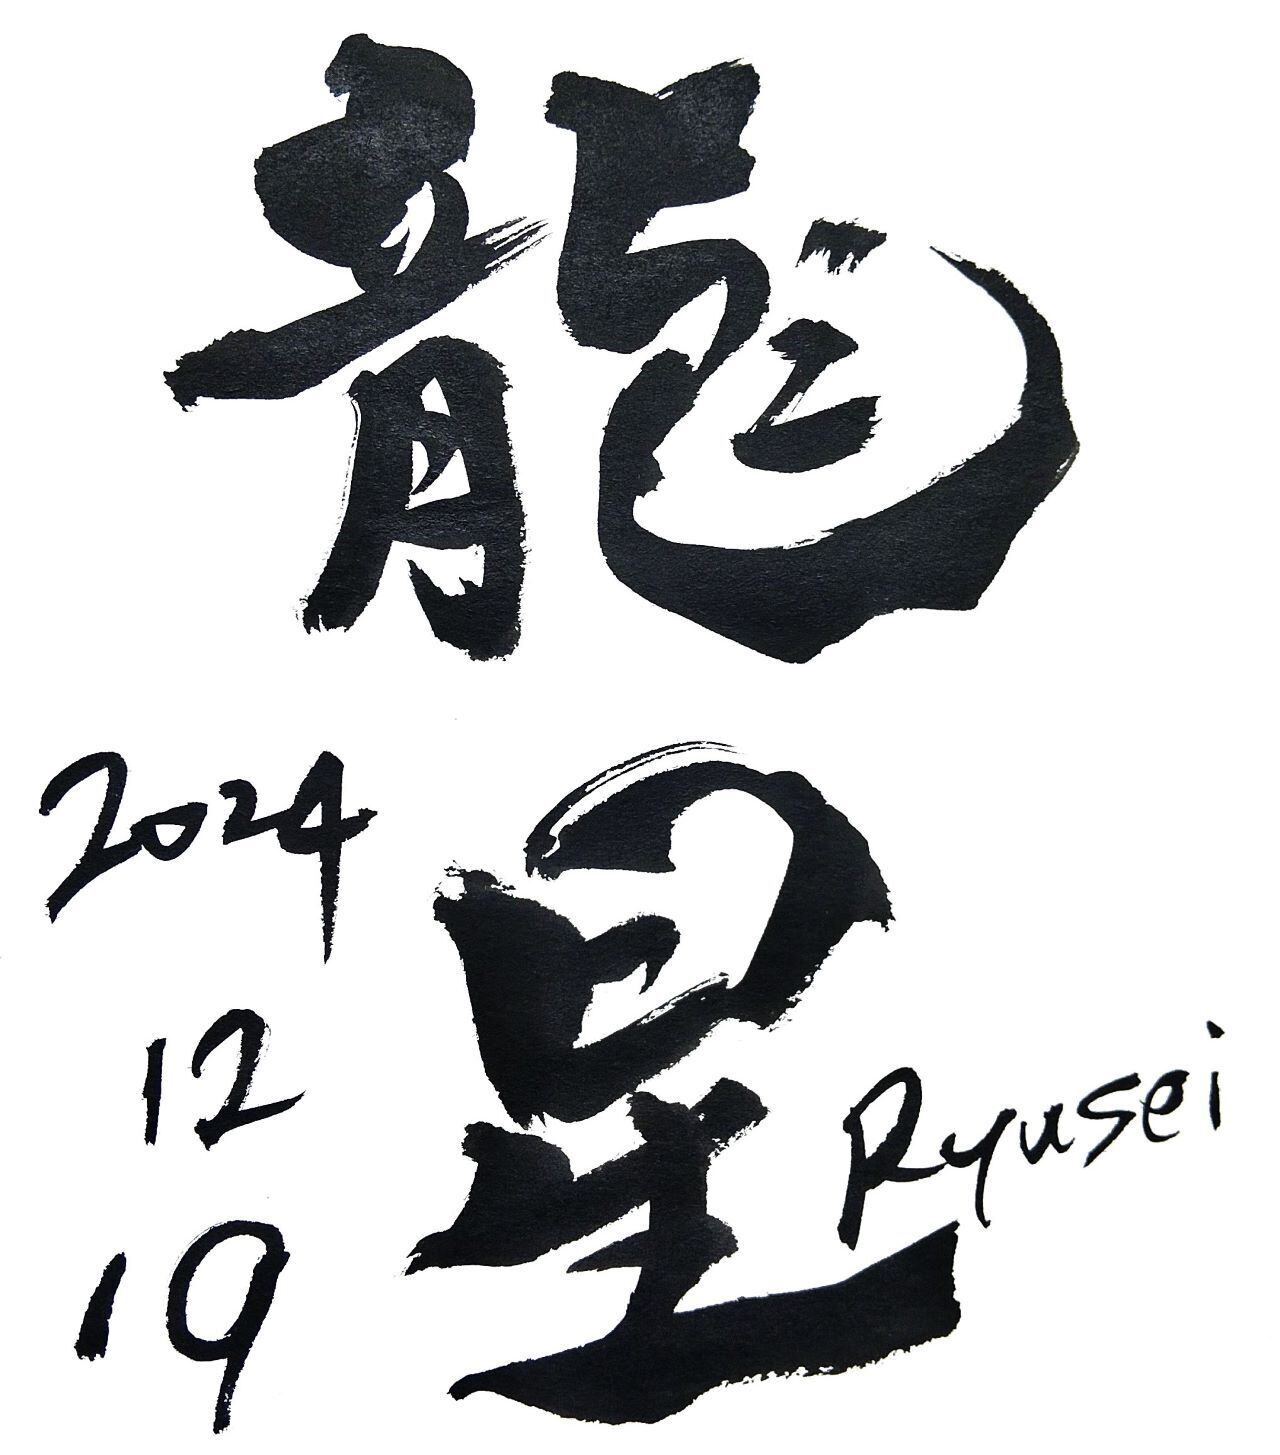 龍
星
Ryusei
2024
12
19